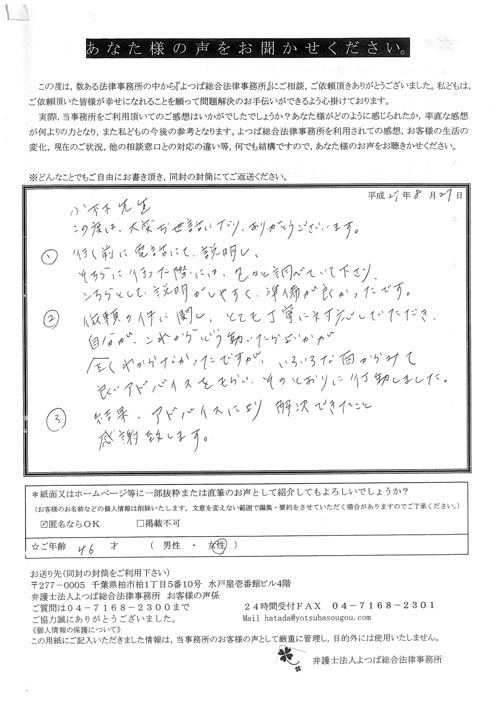 あなた様の声をお聞かせください。
この度は，数ある法律事務所の中から『よつば総合法律事務所』にご相談，ご依頼頂きありがとうございました。私どもは，
ご依頼頂いた皆様が幸せになれることを願って問題解決のお手伝いができるよう心掛けております。
実際，当事務所をご利用頂いてのご感想はいかがでしたでしょうか？あなた様がどのように感じられたか，率直な感想
が何よりの力となり，また私どもの今後の参考となります。よつば総合法律事務所を利用されての感想，お客様の生活の
変化，現在のご状況，他の相談窓口との対応の違い等，何でも結構ですので，あなた様のお声をお聴きかせください。
※どんなことでもご自由にお書き頂き，同封の封筒にてご返送ください。
平成27年8月27日
小林先生
この度は、大変お世話になり、ありがとうございます。
① 行く前に電話にて、説明し、
そちらに行った際には、色々と調べていて下さり、
こちらとして、説明がしやすく、準備が良かったです。
② 依頼の件に関し、とても丁寧に対応していただき、
自分が、これからどう動いたらよいかが
全くわからなかったですが、いろいろな面からみて
良いアドバイスをもらい、そのとおりに行動しました。
③ 結果、アドバイスにより解決できたこと
感謝致します。
＊紙面又はホームページ等に一部抜粋または直筆のお声として紹介してもよろしいでしょうか？
（お客様のお名前などの個人情報は削除いたします。文意を変えない範囲で編集・要約をさせていただく場合がありますのでご了承ください。）
☑匿名ならOK □掲載不可
☆ご年齢 46 才 （ 男性 ・ 女性 ）
お送り先（同封の封筒をご利用下さい）
〒277－0005 千葉県柏市柏1丁目5番10号 水戸屋壱番館ビル4階
弁護士法人よつば総合法律事務所 お客様の声係
ご質問は04－7168－2300まで 24時間受付FAX 04－7168－2301
ご協力誠にありがとうございました。 Mail hatada@yotsubasougou.com
《個人情報の保護について》
この用紙にご記入いただきました情報は，当事務所のお客様の声として厳重に管理し，目的外には使用いたしません。
弁護士法人よつば総合法律事務所